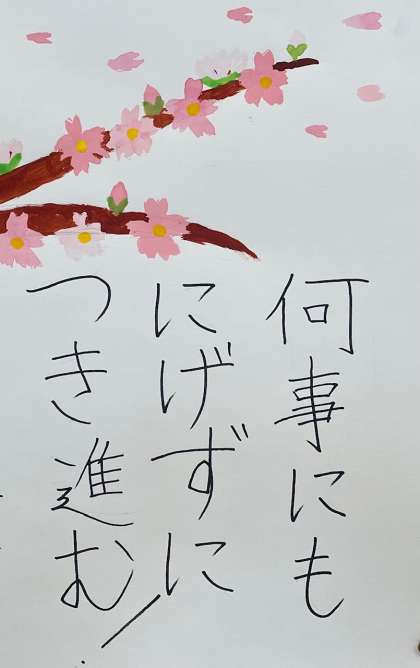 何事にも
にげずに
つき進む!